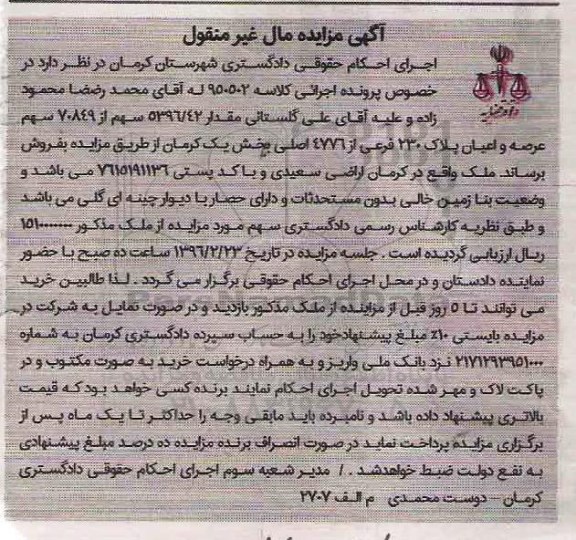 آگهی مزایده مال غیر منقول
اجرای احکام حقوقی دادگستری شهرستان کرمان در نظر دارد در
خصوص پرونده اجرائی کلاسه ۹۵۰۵۰۲ له آقای محمد رضا محمود
زاده و علیه آقای علی گلستانی مقدار ۵۳۹۶/۴۲ سهم از ۷۰۸۴۹ سهم
عرصه و اعیان پلاک ۲۳۰ فرعی از ۴۷۷۶ اصلی بخش یک کرمان از طریق مزایده بفروش
برساند. ملک واقع در کرمان اراضی سعیدی و با کد پستی ۷۶۱۵۱۹۱۱۳۶ می باشد و
وضعیت بنا زمین خالی بدون مستحدثات و دارای حصار با دیوار چینه ای گلی می باشد
و طبق نظریه کارشناس رسمی دادگستری سهم مورد مزایده از ملک مذکور
ریال ارزیابی گردیده است . جلسه مزایده در تاریخ ۱۳۹۶/۲/۲۳ ساعت ده صبح با حضور
نماینده دادستان و در محل اجرای احکام حقوقی برگزار می گردد . لذا طالبین خرید
می توانند تا ۵ روز قبل از مزاینده از ملک مذکور بازدید و در صورت تمایل به شرکت در
مزایده بایستی ۱۰٪ مبلغ پیشنهادخود را به حساب سپرده دادگستری کرمان به شماره
۲۱۷۱۲۹۳۹۵۱۰۰۰ نزد بانک ملی واریز و به همراه درخواست خرید به صورت مکتوب و در
پاکت لاک و مهر شده تحویل اجرای احکام نمایند برنده کسی خواهد بود که قیمت
بالاتری پیشنهاد داده باشد و نامبرده باید مابقی وجه را حداکثر تا یک ماه پس از
برگزاری مزایده پرداخت نماید در صورت انصراف برنده مزایده ده درصد مبلغ پیشنهادی
به نفع دولت ضبط خواهدشد . / مدیر شعبه سوم اجرای احکام حقوقی دادگستری
کرمان – دوست محمدی م الف ۲۷۰۷